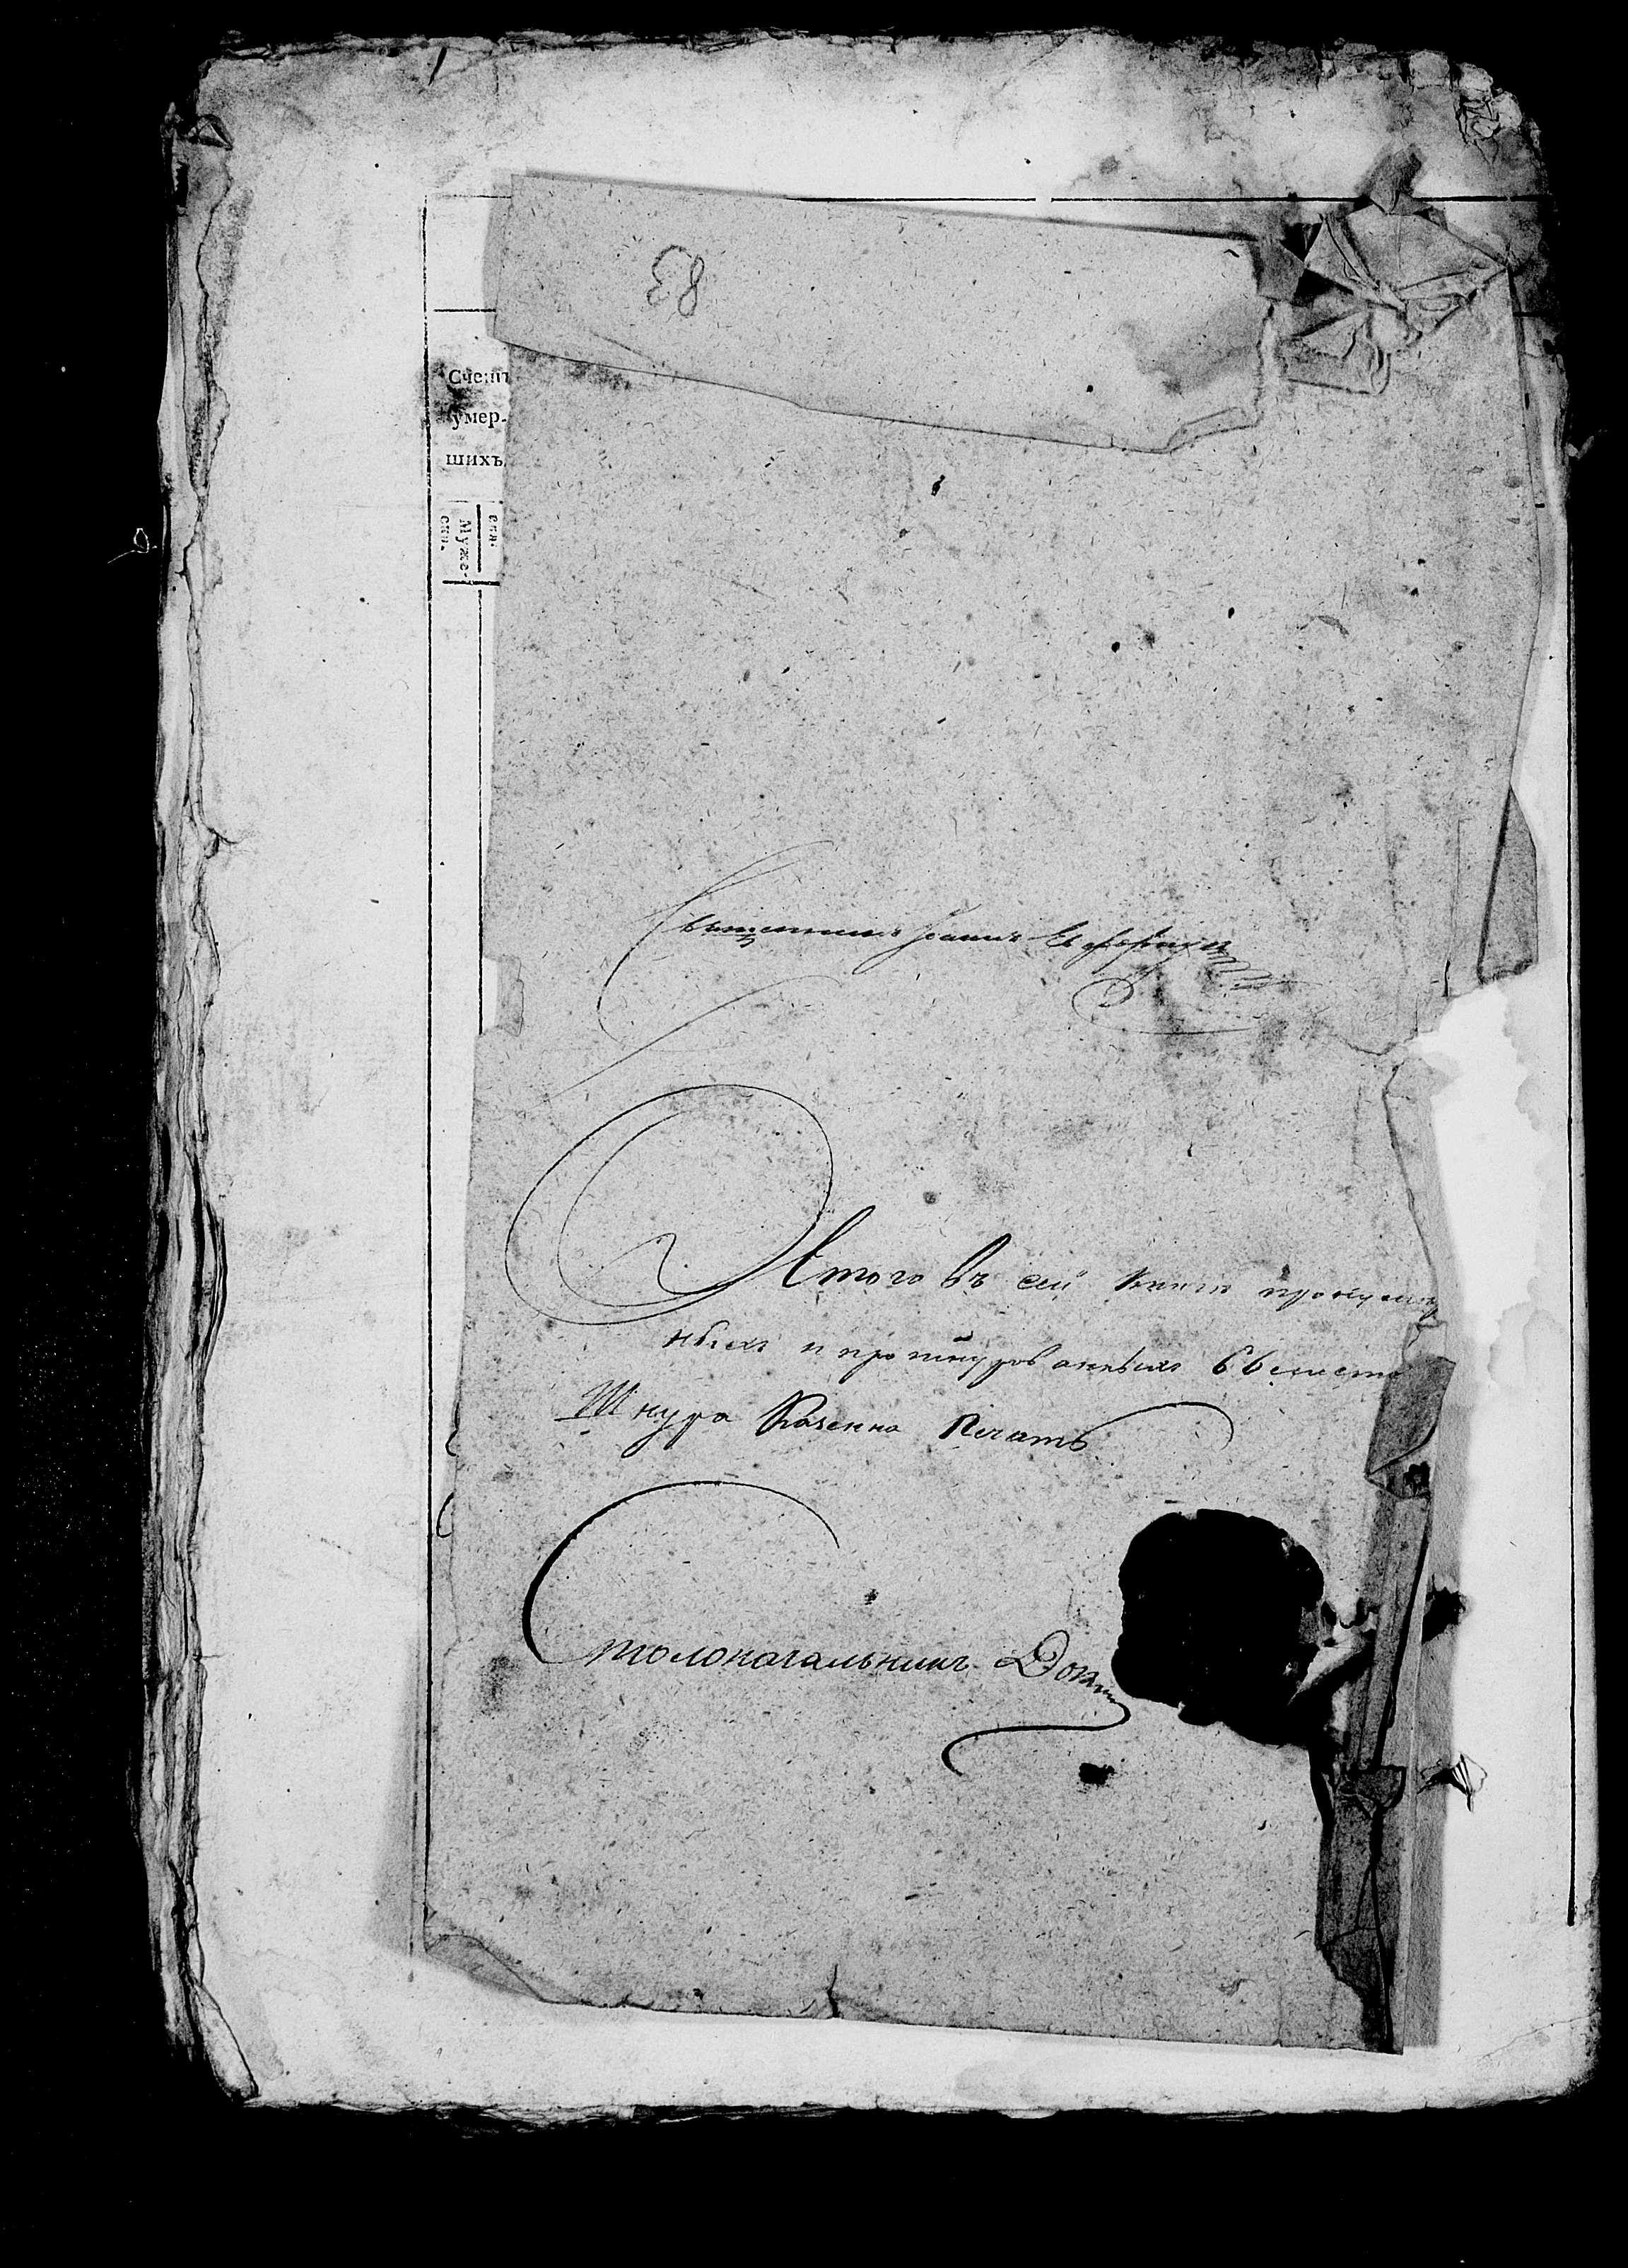 83
Счетъ
умер-
шихъ
Муже-
ска.
Священникъ Іоаннъ
Итого въ сей книгѣ пронумеро
ныхъ и прошнурованныхъ 66 листо
Шнура Казенна Печать
Столоначальникъ